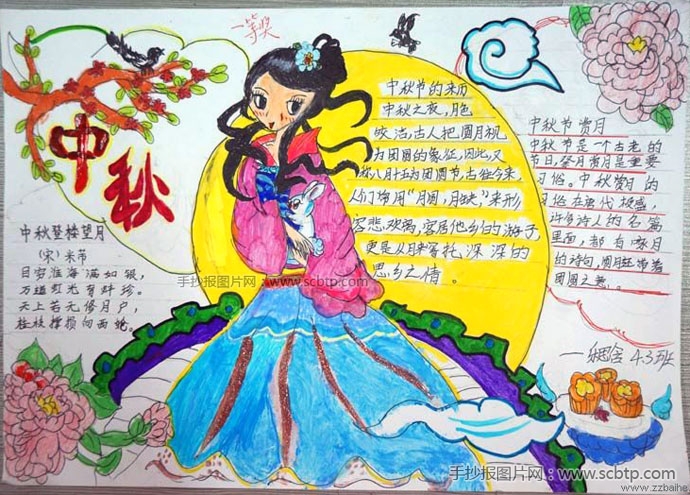 一等奖
中秋
中秋登楼望月
(宋)米芾
目穷淮海满如银,
万道虹光育蚌珍。
天上若无修月户,
桂枝撑损向西轮。
中秋节的来历
中秋之夜,月色
皎洁,古人把圆月视
为团圆的象征,因此,又
称八月十五为团圆节。古往今来,
人们常用“月圆、月缺”来形
容悲欢离合,客居他乡的游子,
更是以月来寄托深深的
思乡之情。
中秋节赏月
中秋节是一个古老的
节日,祭月赏月是重要
习俗。中秋赏月的
习俗在唐代极盛,
许多诗人的名篇
里面,都有咏月
的诗句,圆月带着
团圆之意。
4.3班
手抄报图片网:www.scbtp.com
手抄报图片网:www.scbtp.com
www.zzbaihe